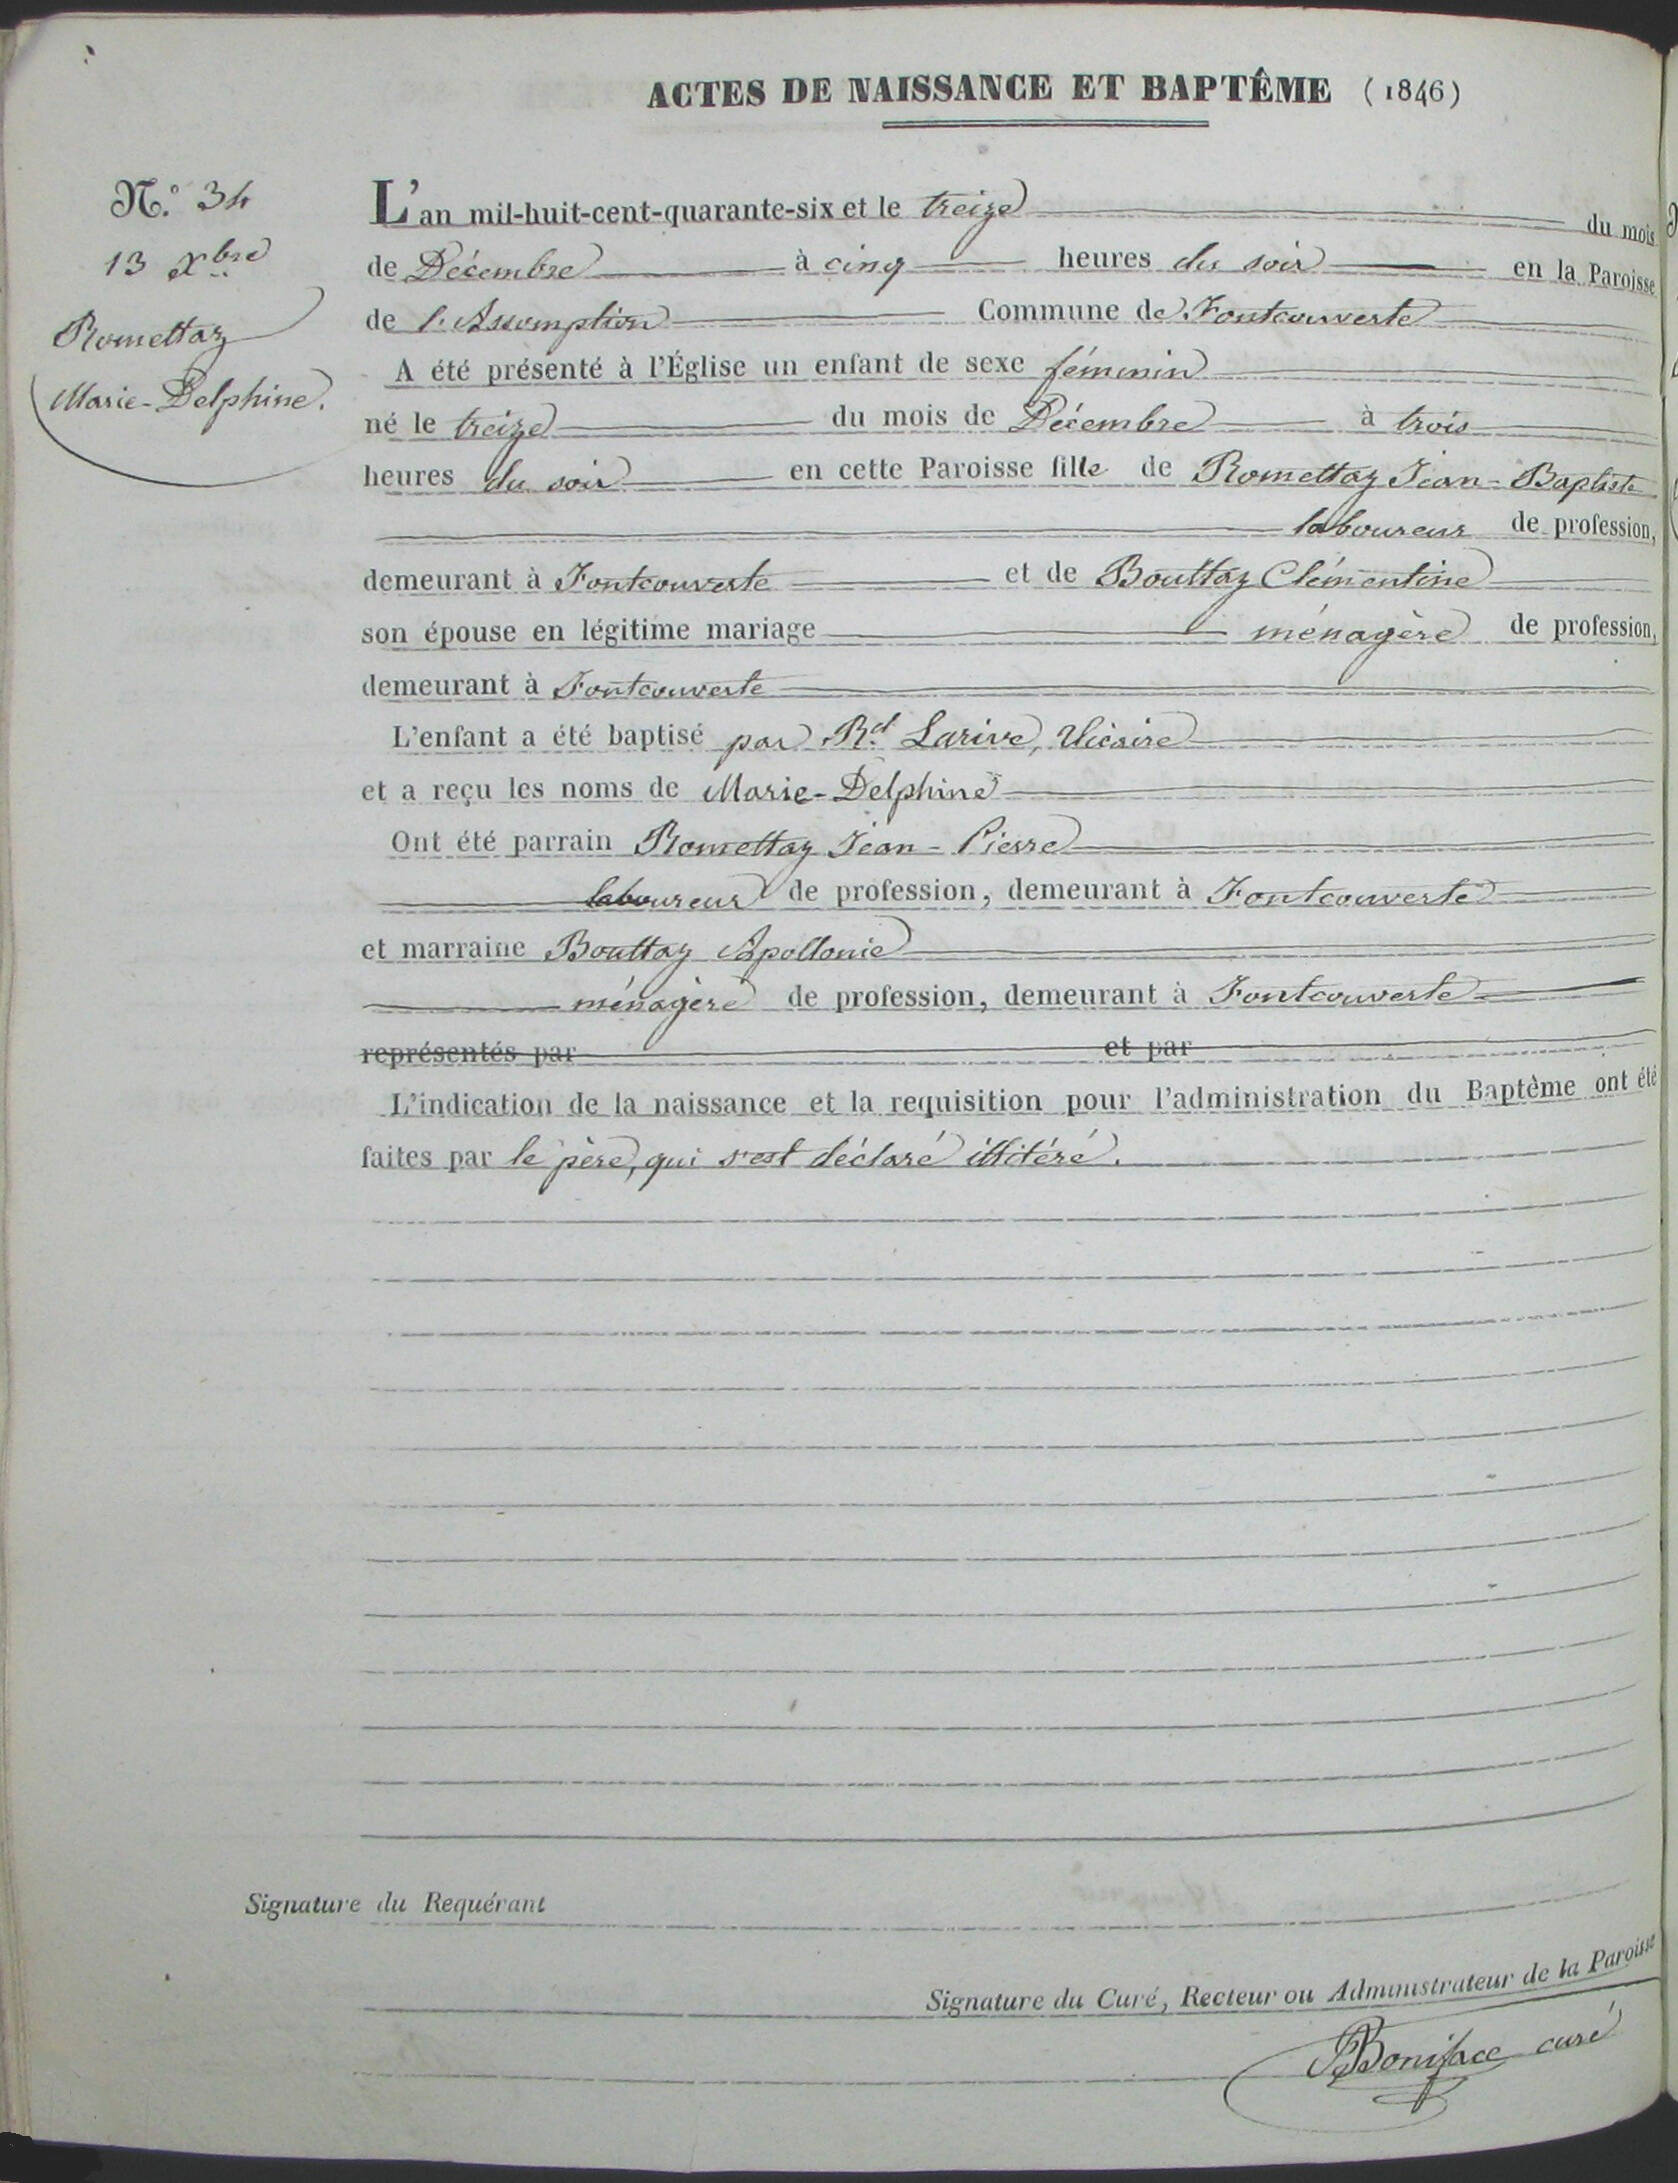 ACTES DE NAISSANCE ET BAPTÊME (1846)
N.° 34
13 Xbre
Romettaz
Marie-Delphine.
L'an mil-huit-cent-quarante-six et le treize du mois
de Décembre à cinq heures du soir en la Paroisse
de l'Assomption Commune de Fontcouverte
A été présenté à l'Église un enfant de sexe féminin
né le treize du mois de Décembre à trois
heures du soir en cette Paroisse fille de Romettaz Jean-Baptiste
laboureur de profession,
demeurant à Fontcouverte et de Bouttaz Clémentine
son épouse en légitime mariage ménagère de profession,
demeurant à Fontcouverte
L'enfant a été baptisé par Rd Larive, Vicaire
et a reçu les noms de Marie-Delphine
Ont été parrain Romettaz Jean-Pierre
laboureur de profession, demeurant à Fontcouverte
et marraine Bouttaz Apollonie
ménagère de profession, demeurant à Fontcouverte
représentés par et par
L'indication de la naissance et la requisition pour l'administration du Baptême ont été
faites par le père, qui s'est déclaré illitéré.
Signature du Requérant
Signature du Curé, Recteur ou Administrateur de la Paroisse
Boniface curé